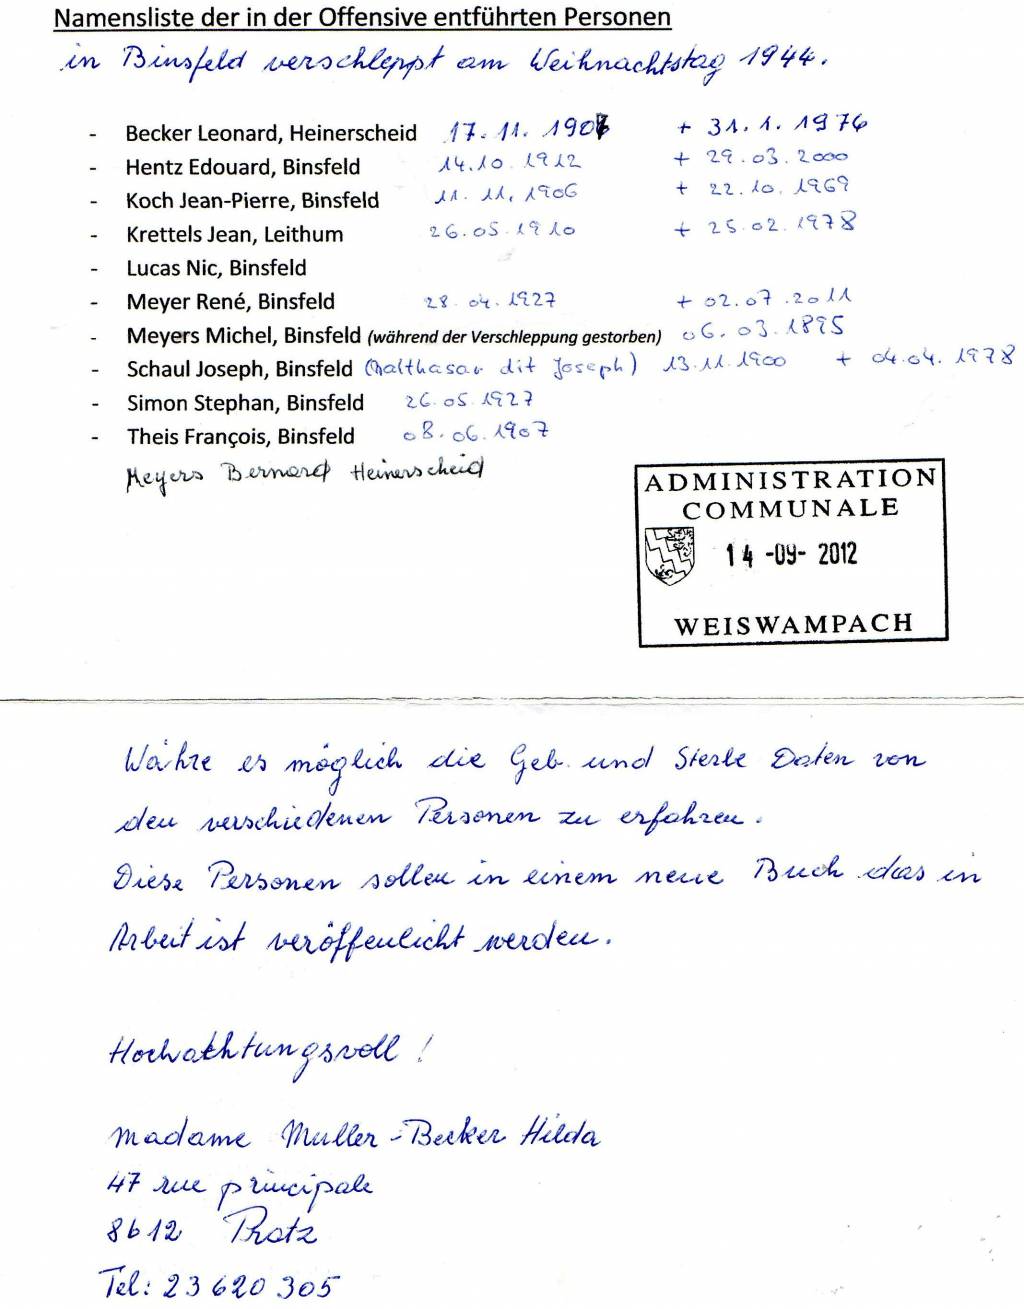 Namensliste der in der Offensive entführten Personen
in Binsfeld verschleppt am Weihnachtstag 1944.
- Becker Leonard, Heinerscheid 17.11.1907 + 31.1.1976
- Hentz Edouard, Binsfeld 14.10.1912 + 29.03.2000
- Koch Jean-Pierre, Binsfeld 11.11.1906 + 22.10.1969
- Krettels Jean, Leithum 26.05.1910 + 25.02.1978
- Lucas Nic, Binsfeld
- Meyer René, Binsfeld 28.04.1927 + 02.07.2011
- Meyers Michel, Binsfeld (während der Verschleppung gestorben) 06.03.1895
- Schaul Joseph, Binsfeld (Balthasar dit Joseph) 13.11.1900 + 04.04.1978
- Simon Stephan, Binsfeld 26.05.1927
- Theis François, Binsfeld 08.06.1907
Meyers Bernard Heinerscheid
ADMINISTRATION
COMMUNALE
14 -09- 2012
WEISWAMPACH
Währe es möglich die Geb. und Sterbe Daten von
den verschiedenen Personen zu erfahren.
Diese Personen sollen in einem neue Buch das in
Arbeit ist veröffenlicht werden.
Hochachtungsvoll!
Madame Muller-Becker Hilda
47 rue principale
8612 Pratz
Tel: 23 620 305